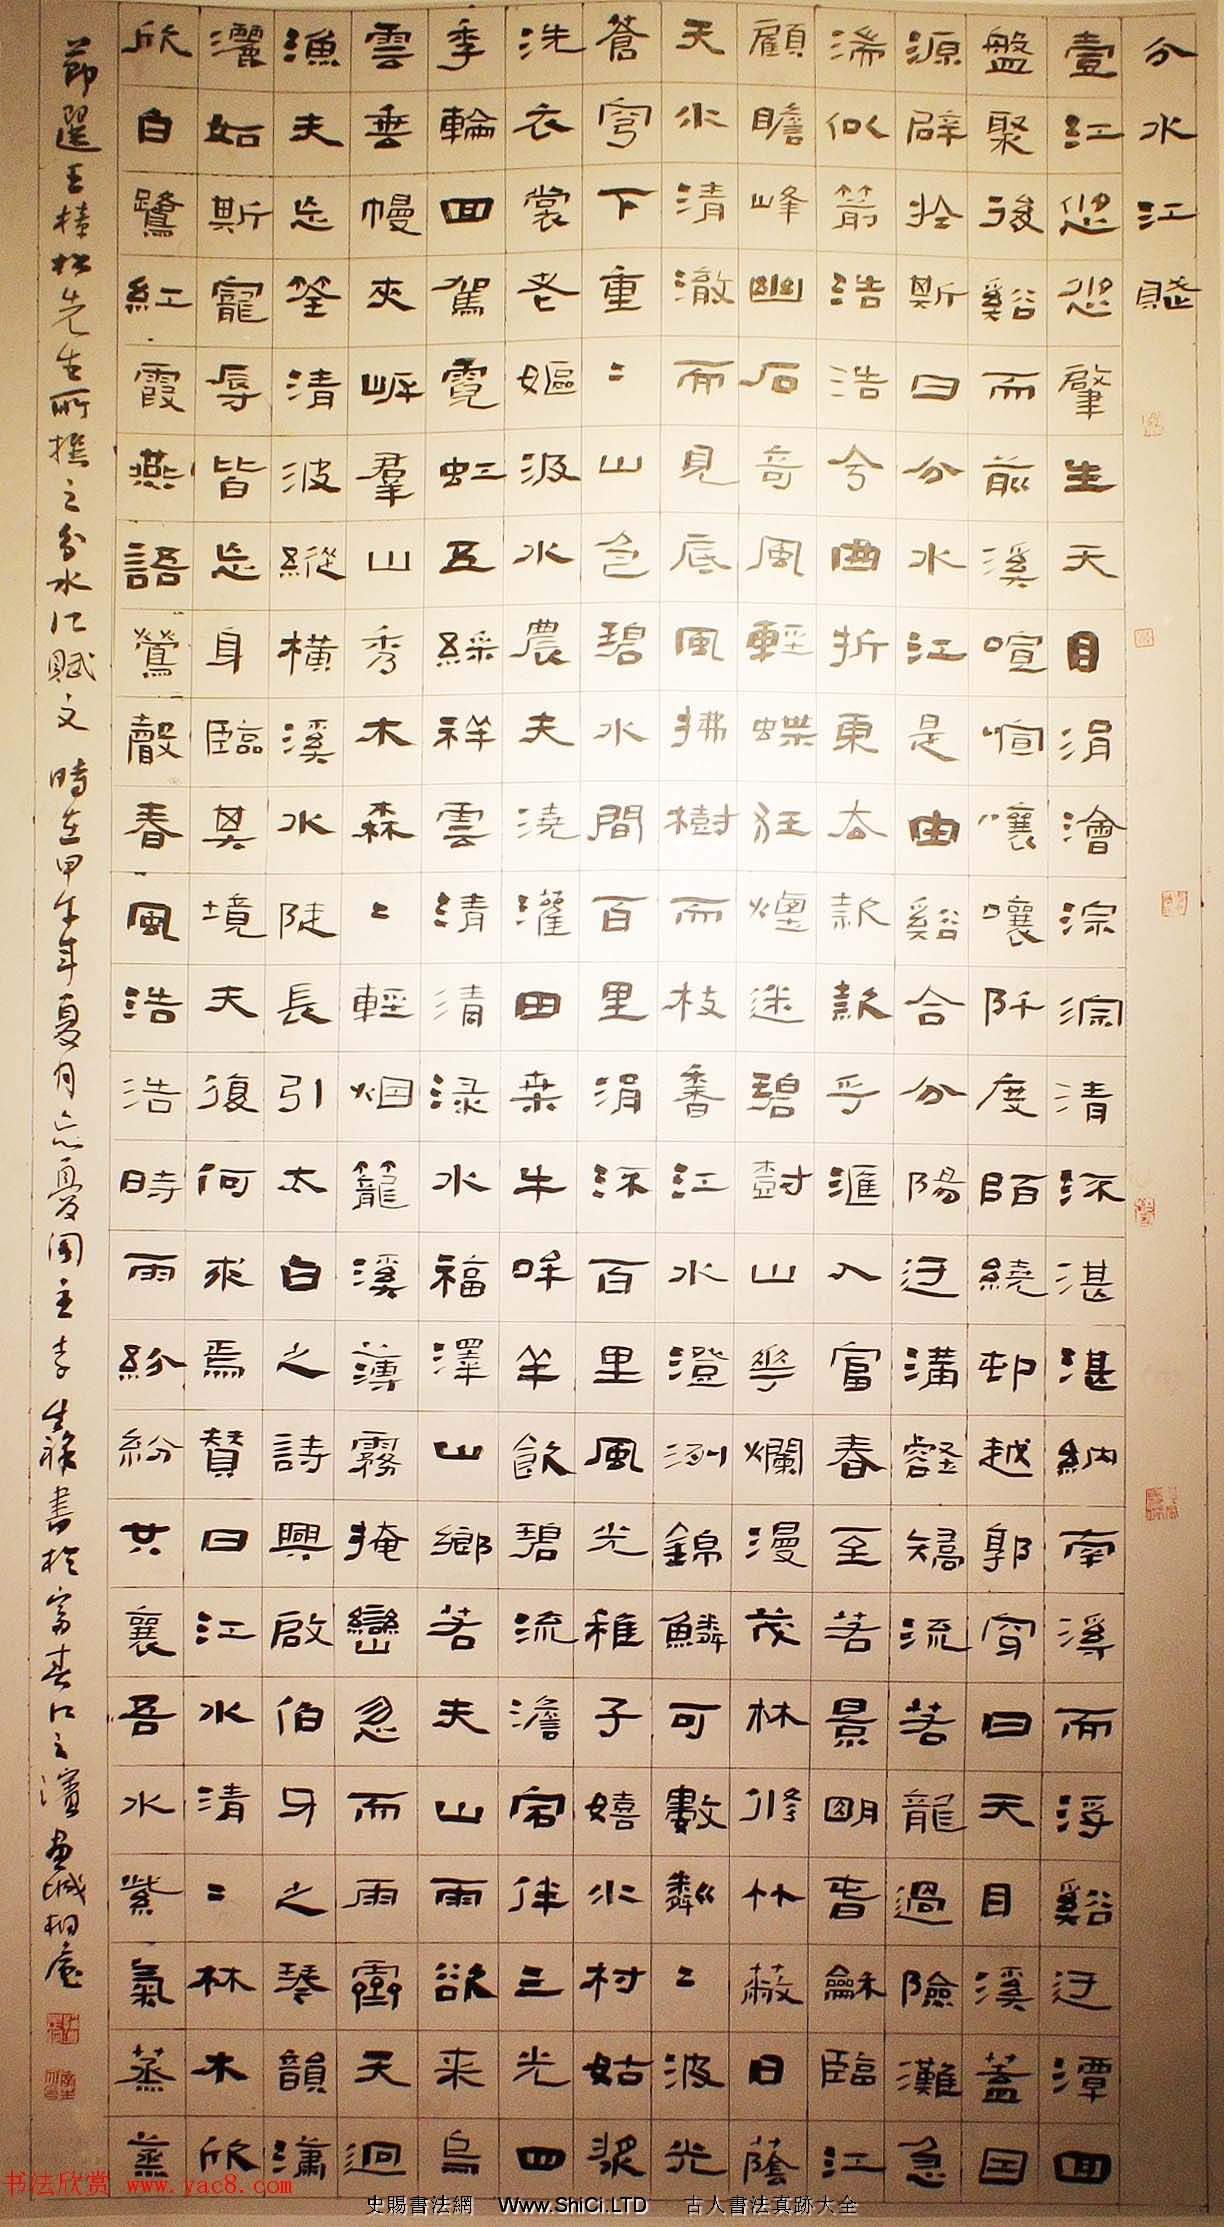 分水江賦
壹江悠悠肇生天目涓澮淙淙清流湛湛納南溪而浮谿迂潭回
盤聚後谿而前溪喧喧嚷嚷阡度陌繞邨越郭穿曰天目溪蓋因
源辟於斯曰分水江是由谿合分陽迂溝壑矯流若龍過險灘急
湍似箭浩浩兮曲折東去款款乎滙入富春至若景明春龢臨江
顧瞻峰幽石奇風輕蝶狂煙迷碧樹山花爛漫茂林修竹蔽日蔭
天水清澈而見底風拂樹而枝香江水澄洌錦鱗可數粼〻波光
蒼穹下重〻山色碧水間百里涓流百里風光稚子嬉水村姑漿
洗衣裳老嫗汲水農夫澆灌田桒牛哞羊飲碧流澹宕伴三光四
季輪回駕霓虹五綵祥雲清清淥水福澤山鄉若夫山雨欲来烏
雲垂幔夾岸羣山秀木森〻輕烟籠溪薄霧掩巒忽而雨霽天迥
漁夫忘筌清波縱橫溪水陡長引太白之詩興啟伯牙之琴韻瀟
灑如斯寵辱皆忘身臨其境夫復何求焉贊曰江水清〻林木欣
欣白鷺紅霞燕語鶯聲春風浩浩時雨紛紛共襄吾水紫氣蒸蒸
節選王樟松先生所撰之分水江賦文 時在甲午年夏月忘憂閣主李生祿書於富春江之濱畫城桐廬
书法欣赏 www.yac8.com
史賜書法網 Www.ShiCi.LTD 古人書法真跡大全